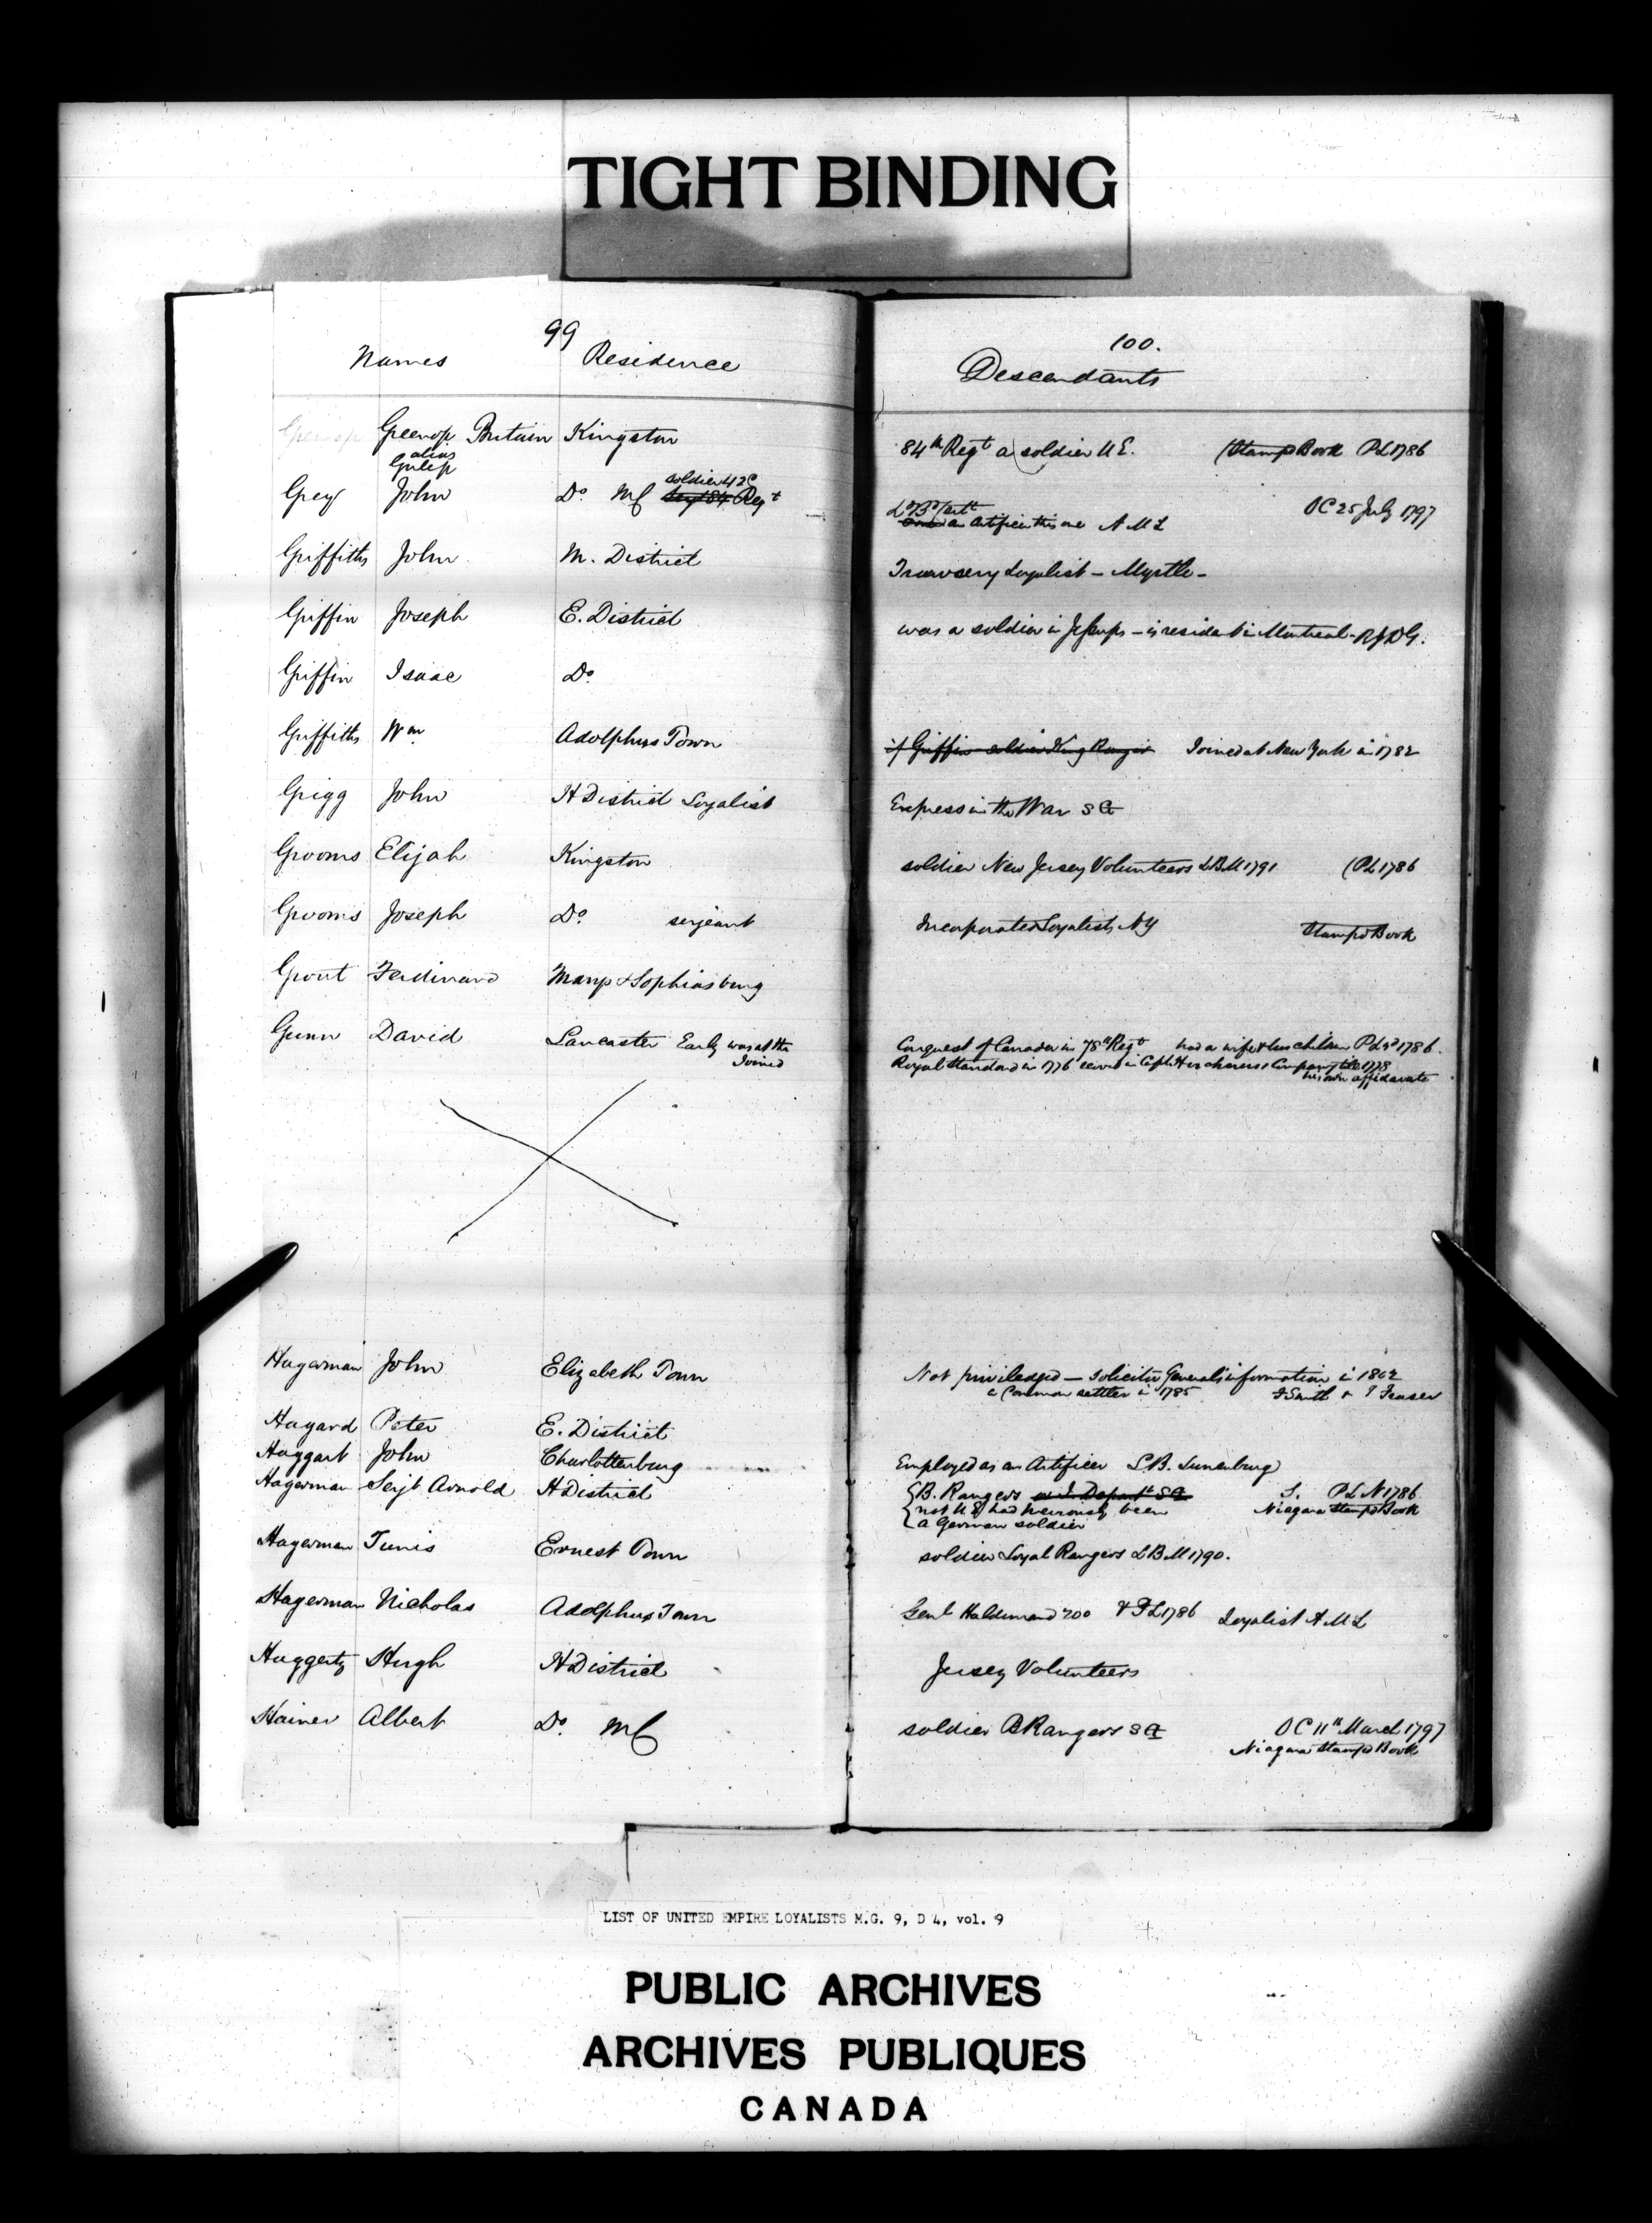 TIGHT BINDING
99
Names Residence
Greenop Britain Kingston
alias
John Do soldier 42d Regt
Grey
Griffiths John M. District
Griffin Joseph E. District
Griffin Isaac Do
Griffiths Wm Adolphus Town
Grigg John H District Loyalist
Grooms Elijah Kingston
Grooms Joseph Do serjeant
Grout Ferdinand Marys & Sophiasburg
Gunn David Lancaster Early was at the
Joined
Hagerman John Elizabeth Town
Hagard Peter E. District
Haggart John Charlottenburg
Hagerman Serjt Arnold H District
Hagerman Tunis Ernest Town
Hagerman Nicholas Adolphus Town
Haggerty Hugh H District
Hainer Albert Do MC
100.
Descendants
84th Regt a soldier U E. (Stamp Book P L 1786
an artificer this one A M L OC 25 July 1797
Loyalist - Myrtle -
was a soldier in Jessups - is resident in Montreal - R J D G.
if Griffin soldier King Rangers Joined at New York in 1782
Express in the War S G
soldier New Jersey Volunteers L B M 1791 (P L 1786
Incorporated Loyalists, NY Stamp Book
Conquest of Canada in 78th Regt had a wife & two children P L 2d 1786.
Royal Standard in 1776 served in Capt Herchmers Company till 1778
his own affidavate
Not priviledged - Solicitor Generals information in 1802
a Common settler in 1785 J Smith & T Fraser
Employed as an Artificer L B. Lunenburg
B. Rangers or I. Depart S G S. P L N 1786
not U E had previously been Niagara Stamp Book
a German soldier
soldier Loyal Rangers L B M 1790.
Genl Haldimand 700 & P L 1786 Loyalist A M L
Jersey Volunteers
soldier B Rangers S G OC 11th March 1797
Niagara Stamp Book
LIST OF UNITED EMPIRE LOYALISTS M.G. 9, D 4, vol. 9
PUBLIC ARCHIVES
ARCHIVES PUBLIQUES
CANADA